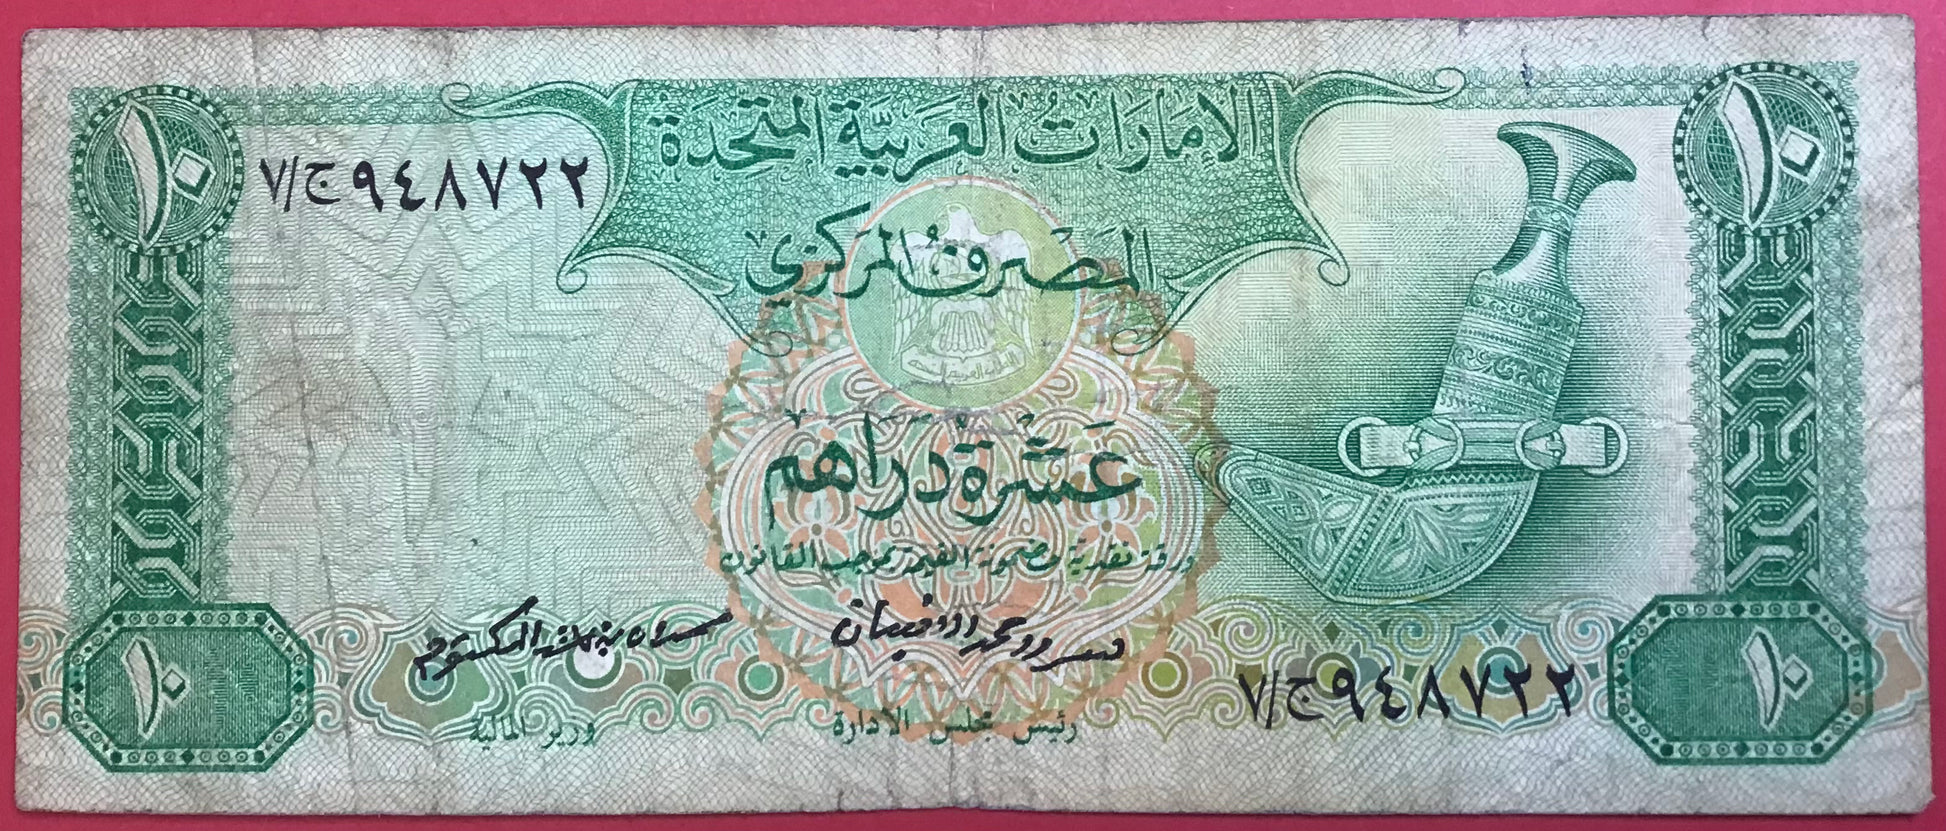 الإمارات العربية المتحدة
١٠
١٠
٧/ج٩٤٨٧٢٢
المصرف المركزي
عشرة دراهم
ورقة نقدية مضمونة القيمة بموجب القانون
رئيس مجلس الادارة
وزير المالية
٧/ج٩٤٨٧٢٢
١٠
١٠